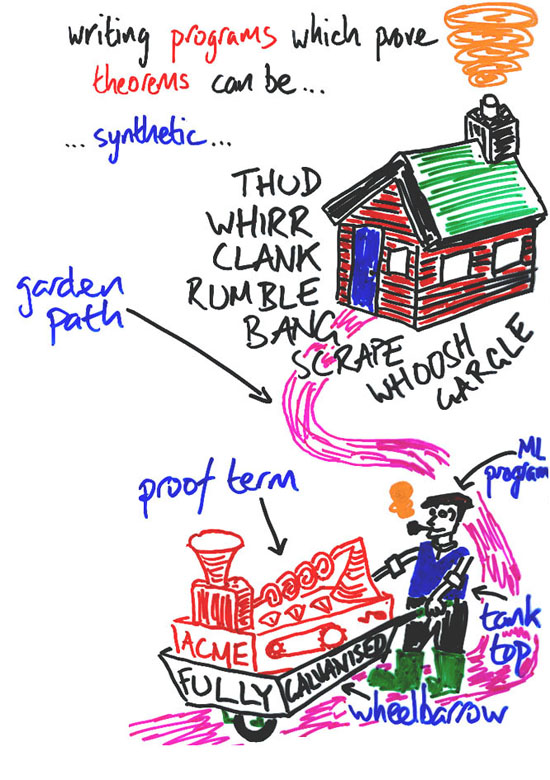 writing programs which prove
theorems can be...
...synthetic...
THUD
WHIRR
CLANK
RUMBLE
BANG
SCRAPE
WHOOSH
GARGLE
garden
path
ML
program
proof term
tank
top
ACME
FULLY GALVANISED
wheelbarrow